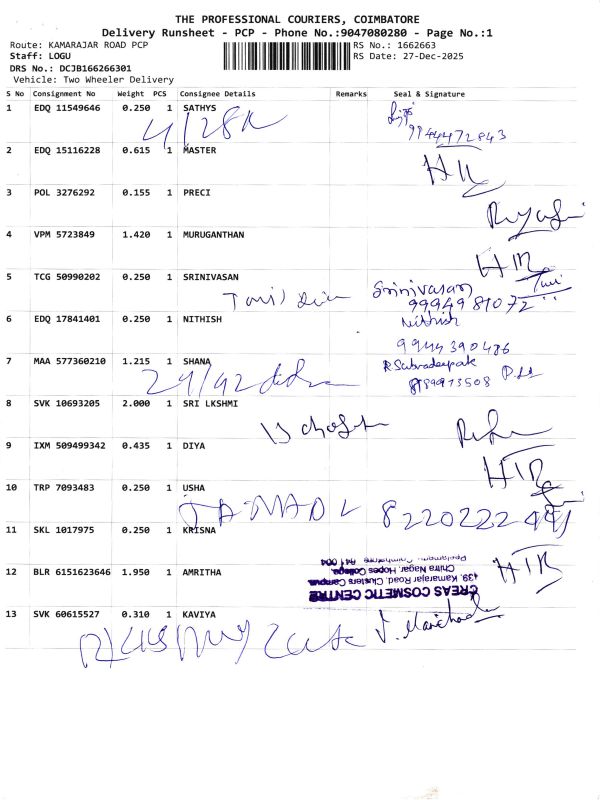 THE PROFESSIONAL COURIERS, COIMBATORE
Delivery Runsheet - PCP - Phone No.:9047080280 - Page No.:1
Route: KAMARAJAR ROAD PCP RS No.: 1662663
Staff: LOGU RS Date: 27-Dec-2025
DRS No.: DCJB166266301
Vehicle: Two Wheeler Delivery
S No Consignment No Weight PCS Consignee Details Remarks Seal & Signature
1 EDQ 11549646 0.250 1 SATHYS
4/28A 9944472843
2 EDQ 15116228 0.615 1 MASTER
3 POL 3276292 0.155 1 PRECI
4 VPM 5723849 1.420 1 MURUGANTHAN
5 TCG 50990202 0.250 1 SRINIVASAN Srinivasan
9994981072
6 EDQ 17841401 0.250 1 NITHISH Nithish
9944390486
7 MAA 577360210 1.215 1 SHANA R Sabradeepak
24/42
8 SVK 10693205 2.000 1 SRI LKSHMI
9 IXM 509499342 0.435 1 DIYA
10 TRP 7093483 0.250 1 USHA
11 SKL 1017975 0.250 1 KRISNA
12 BLR 6151623646 1.950 1 AMRITHA
CREAS COSMETIC CENTRE
439, Kamarajar Road, Clusters Campus,
Chitra Nagar, Hopes College,
641 004
13 SVK 60615527 0.310 1 KAVIYA